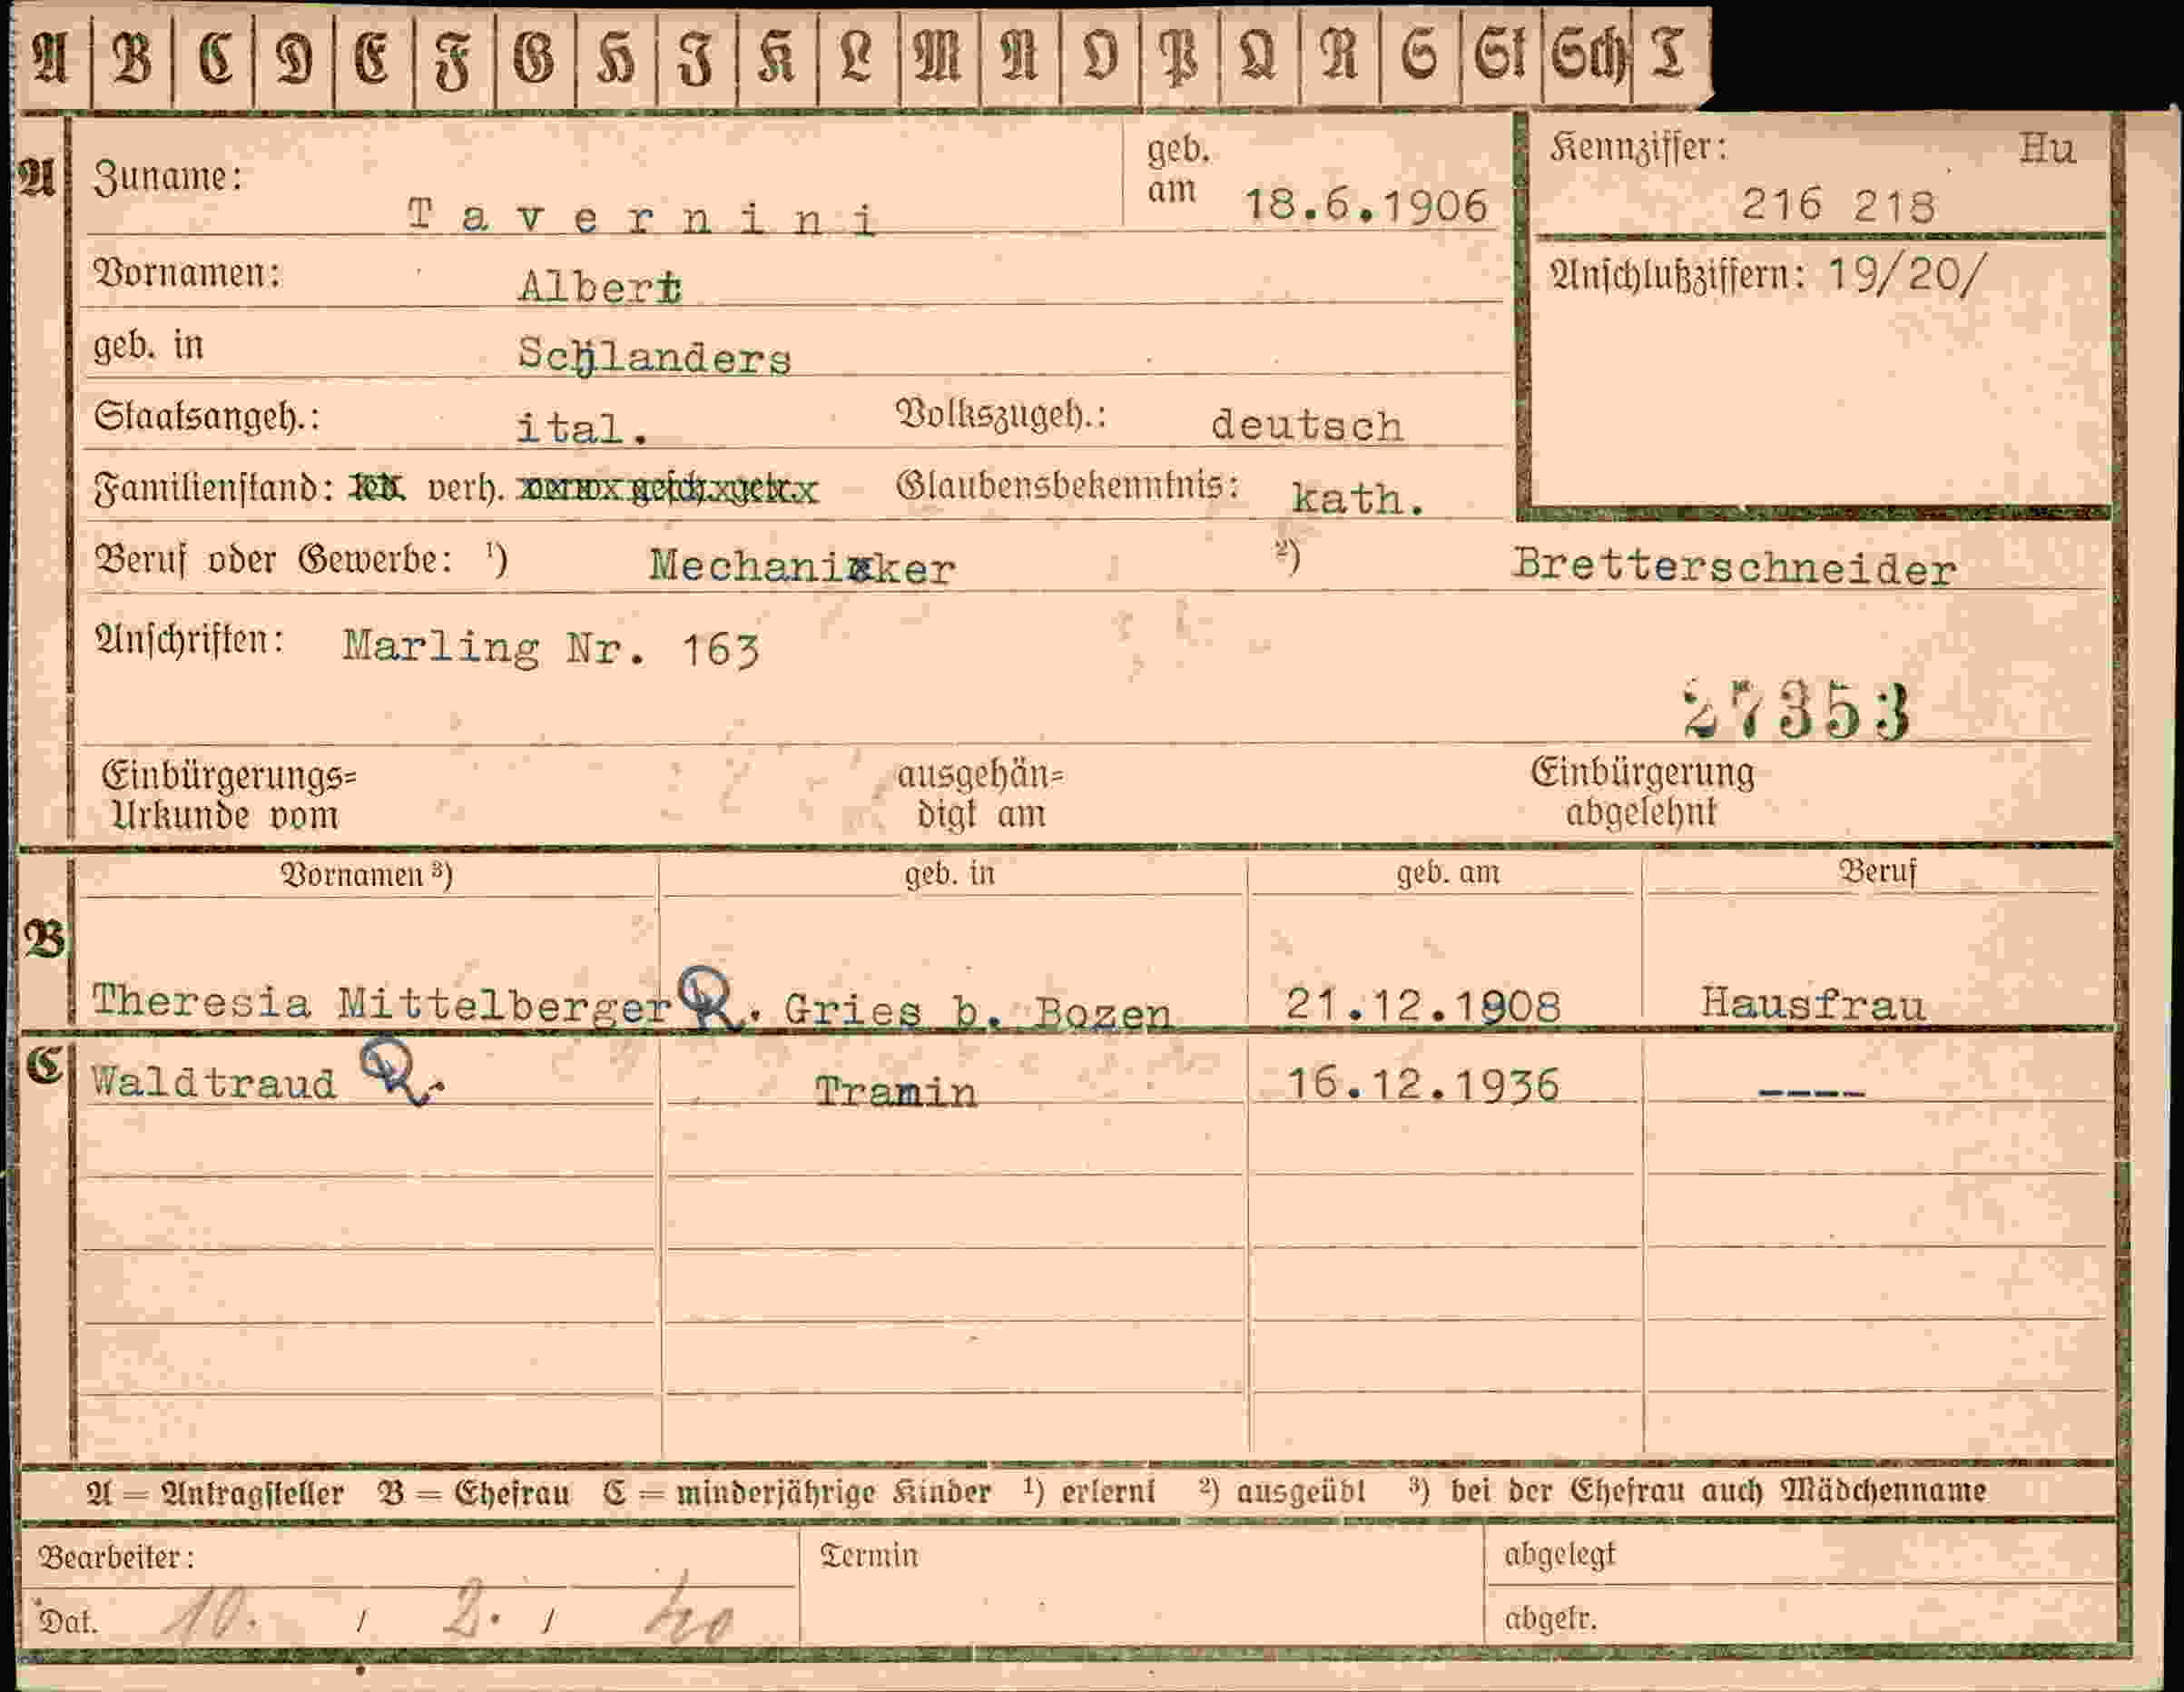 A B C D E F G H I K L M N O P Q R S St Sch T
A Zuname: Tavernini geb. am 18.6.1906
Kennziffer: Hu
216 218
Vornamen: Albert
Anschlußziffern: 19/20/
geb. in Schlanders
Staatsangeh.: ital. Volkszugeh.: deutsch
Familienstand: led. verh. verw. gesch. getr. Glaubensbekenntnis: kath.
Beruf oder Gewerbe: ¹) Mechaniker ²) Bretterschneider
Anschriften: Marling Nr. 163
27353
Einbürgerungs=
Urkunde vom
ausgehän=
digt am
Einbürgerung
abgelehnt
Vornamen ³) geb. in geb. am Beruf
B Theresia Mittelberger R. Gries b. Bozen 21.12.1908 Hausfrau
C Waldtraud R. Tramin 16.12.1936 ----
A = Antragsteller B = Ehefrau C = minderjährige Kinder ¹) erlernt ²) ausgeübt ³) bei der Ehefrau auch Mädchenname
Bearbeiter: Termin abgelegt
Dat. 10. / 2. / 40 abgetr.